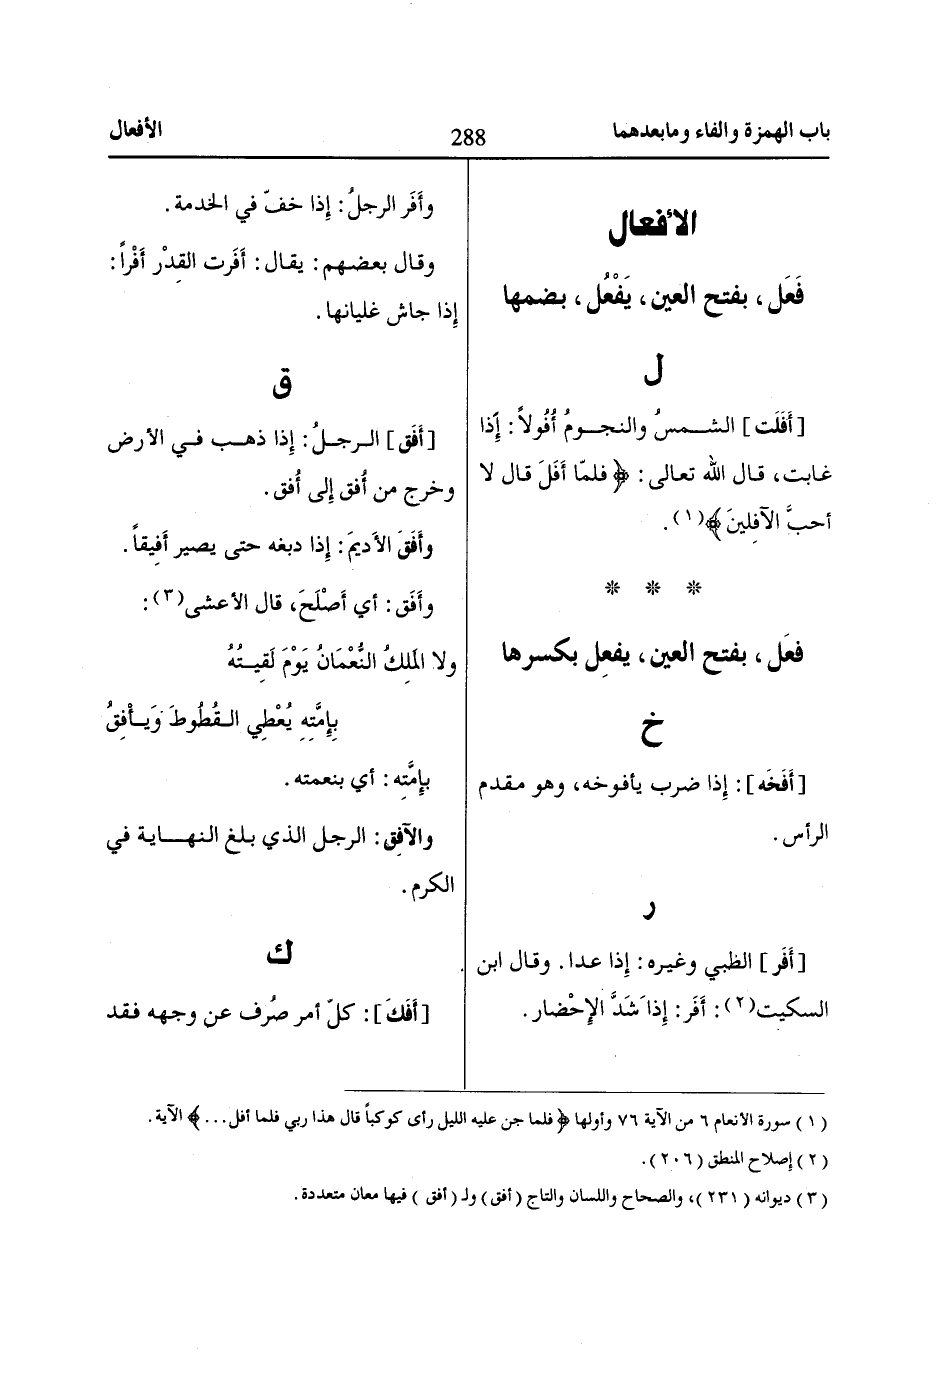 باب الهمزة والفاء ومابعدهما
288
الأفعال
الأفعال
فَعَل، بفتح العين، يَفْعُل، بضمها
ل
[أَفَلَت] الشمسُ والنجومُ أُفُولاً: إِذا
غابت، قال الله تعالى: ﴿فلمّا أَفَلَ قال لا
أحبُّ الآفلينَ﴾(١).
* * *
فعَل، بفتح العين، يفعِل بكسرها
خ
[أَفَخَه]: إذا ضرب يأفوخه، وهو مقدم
الرأس.
ر
[أَفَر] الظبي وغيره: إذا عدا. وقال ابن
السكيت(٢): أَفَر: إذا شَدَّ الإِحْضار.
وأَفَر الرجلُ: إذا خفّ في الخدمة.
وقال بعضهم: يقال: أَفَرت القِدْر أَفْراً:
إذا جاش غليانها.
ق
[أَفَق] الرجلُ: إذا ذهب في الأرض
وخرج من أُفق إلى أُفق.
وأَفَقَ الأديمَ: إذا دبغه حتى يصير أَفِيقاً.
وأَفَق: أي أَصْلَحَ، قال الأعشى(٣):
ولا المَلِكُ النُّعْمَانُ يَوْمَ لَقِيتُهُ
بِإِمَّتِهِ يُعْطِي القُطُوطَ وَيَأْفِقُ
بإمَّته: أي بنعمته.
والآفِق: الرجل الذي بلغ النهاية في
الكرم.
ك
[أَفَكَ]: كلّ أمر صُرف عن وجهه فقد
(١) سورة الانعام ٦ من الآية ٧٦ وأولها ﴿فلما جن عليه الليل رأى كوكباً قال هذا ربي فلما أفل...﴾ الآية.
(٢) إصلاح المنطق (٢٠٦).
(٣) ديوانه (٢٣١)، والصحاح واللسان والتاج (أفق) ولـ (أفق) فيها معان متعددة.